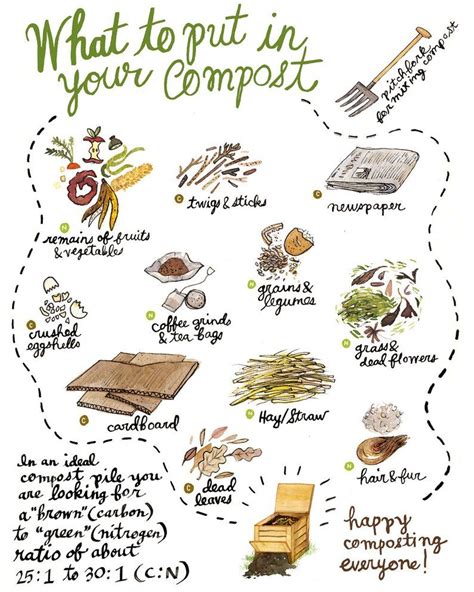 What to put in
your Compost
pitchfork
for mixing compost
N
remains of fruits
& vegetables
C
twigs & sticks
C
newspaper
C
crushed
eggshells
N
coffee grinds
& tea-bags
N
grains &
legumes
N
grass &
dead flowers
C
cardboard
N
Hay/Straw
C
dead
leaves
N
hair & fur
In an ideal
compost pile you
are looking for
a "brown" (carbon)
to "green" (nitrogen)
ratio of about
25:1 to 30:1 (C:N)
happy
composting
everyone!